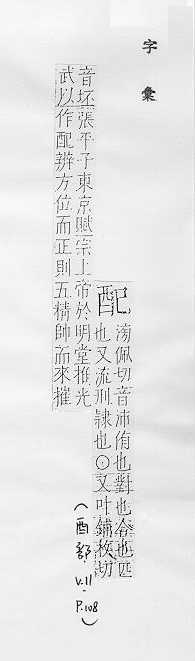 字彙
配
滂佩切音沛侑也對也合也匹
也又流刑隸也○又叶鋪枚切
音坯張平子東京賦宗上帝於明堂推光
武以作配辨方位而正則五精帥而來摧
(酉部 V.11 P.108)